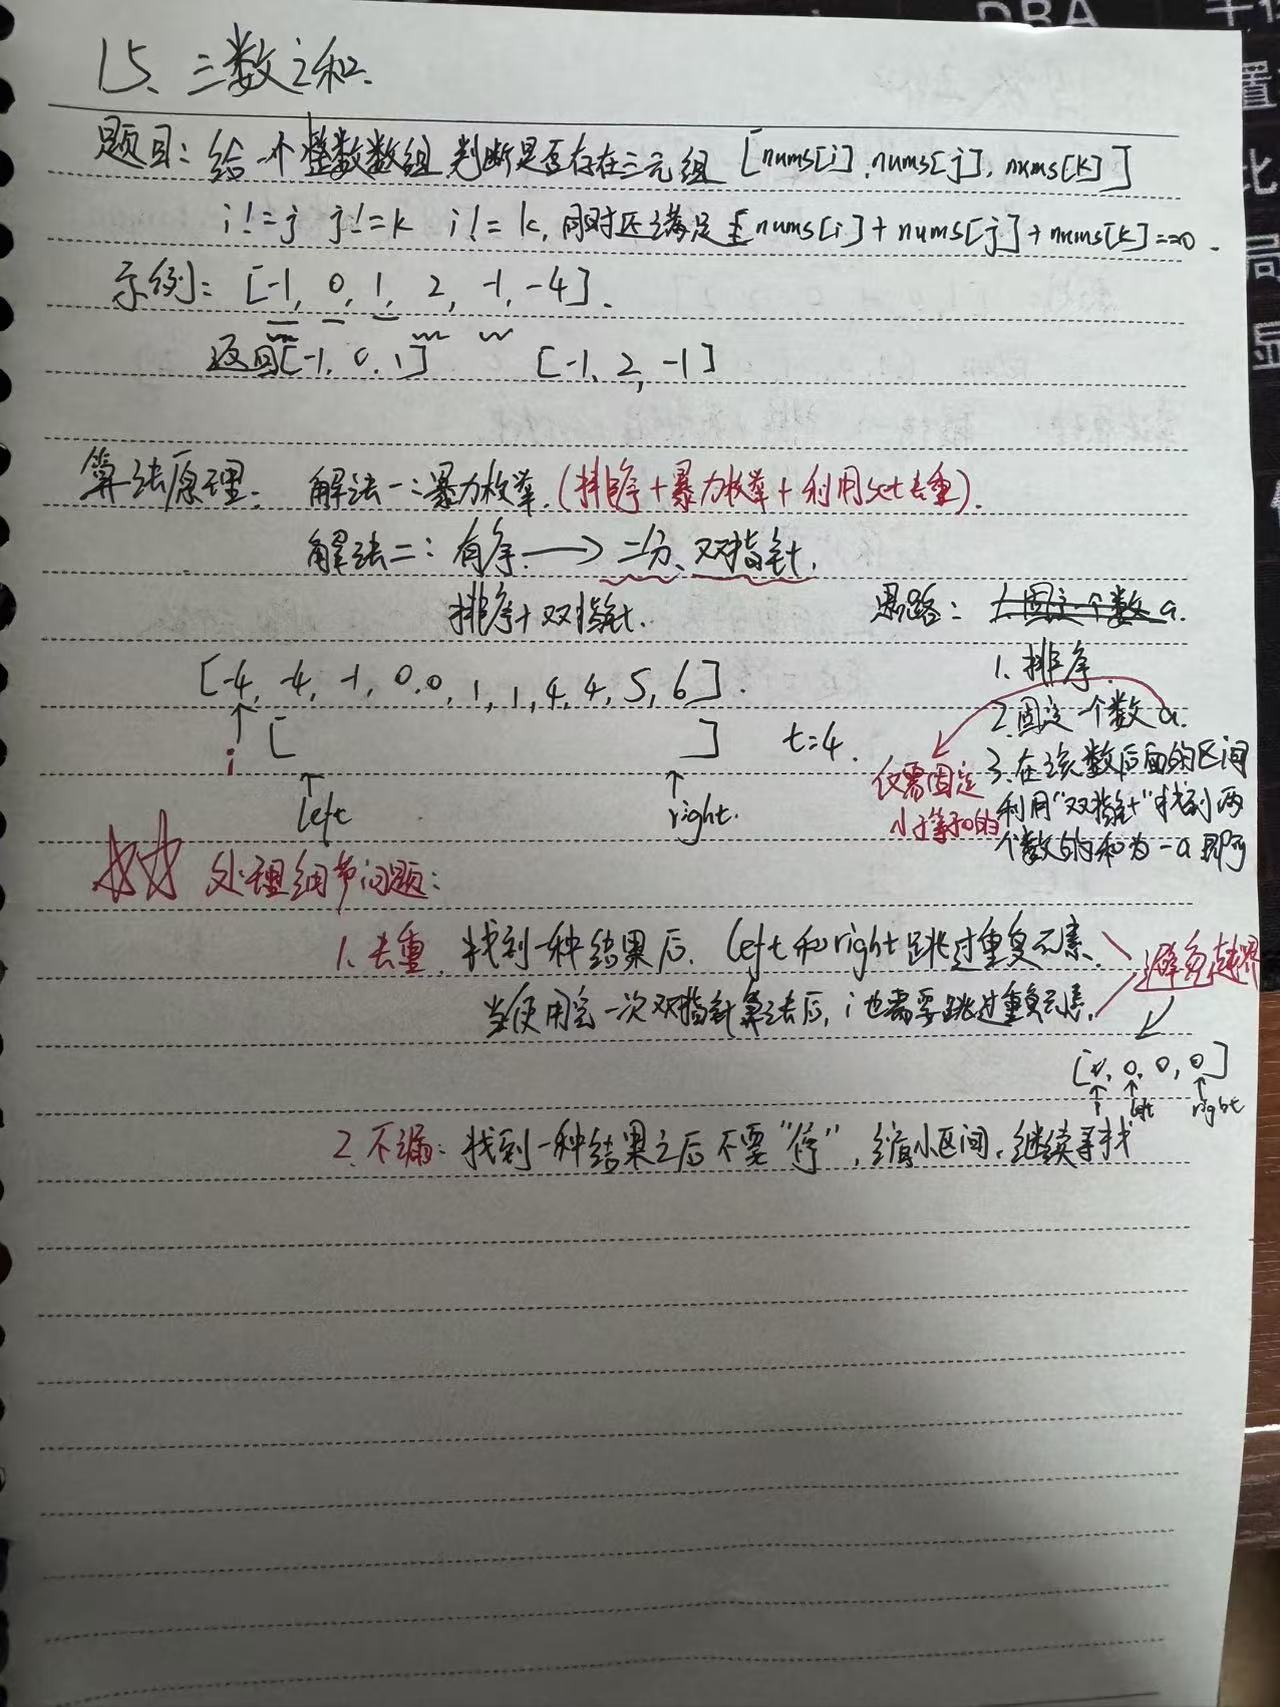 15、三数之和.
题目: 给一个整数数组,判断是否存在三元组 [nums[i],nums[j],nums[k]]
i!=j j!=k i!=k, 同时还满足 nums[i]+nums[j]+nums[k]==0.
示例: [-1, 0, 1, 2, -1, -4].
返回[-1, 0, 1] [-1, 2, -1]
算法原理. 解法一:暴力枚举.(排序+暴力枚举+利用set去重).
解法二: 有序 → 二分、双指针.
排序+双指针.
思路: 1.固定一个数a.
1. 排序.
[-4, -4, -1, 0, 0, 1, 1, 4, 4, 5, 6].
2.固定一个数a.
i [ ] t=4.
仅需固定
小于等于0的
3.在该数后面的区间
利用"双指针"找到两
个数的和为-a即可
left right.
处理细节问题:
1.去重. 找到一种结果后, left和right跳过重复元素.
避免越界
当使用完一次双指针算法后, i也需要跳过重复元素.
[0, 0, 0, 0]
i left right
2.不漏: 找到一种结果之后不要"停", 缩小区间,继续寻找
DRA
置
比
局
显